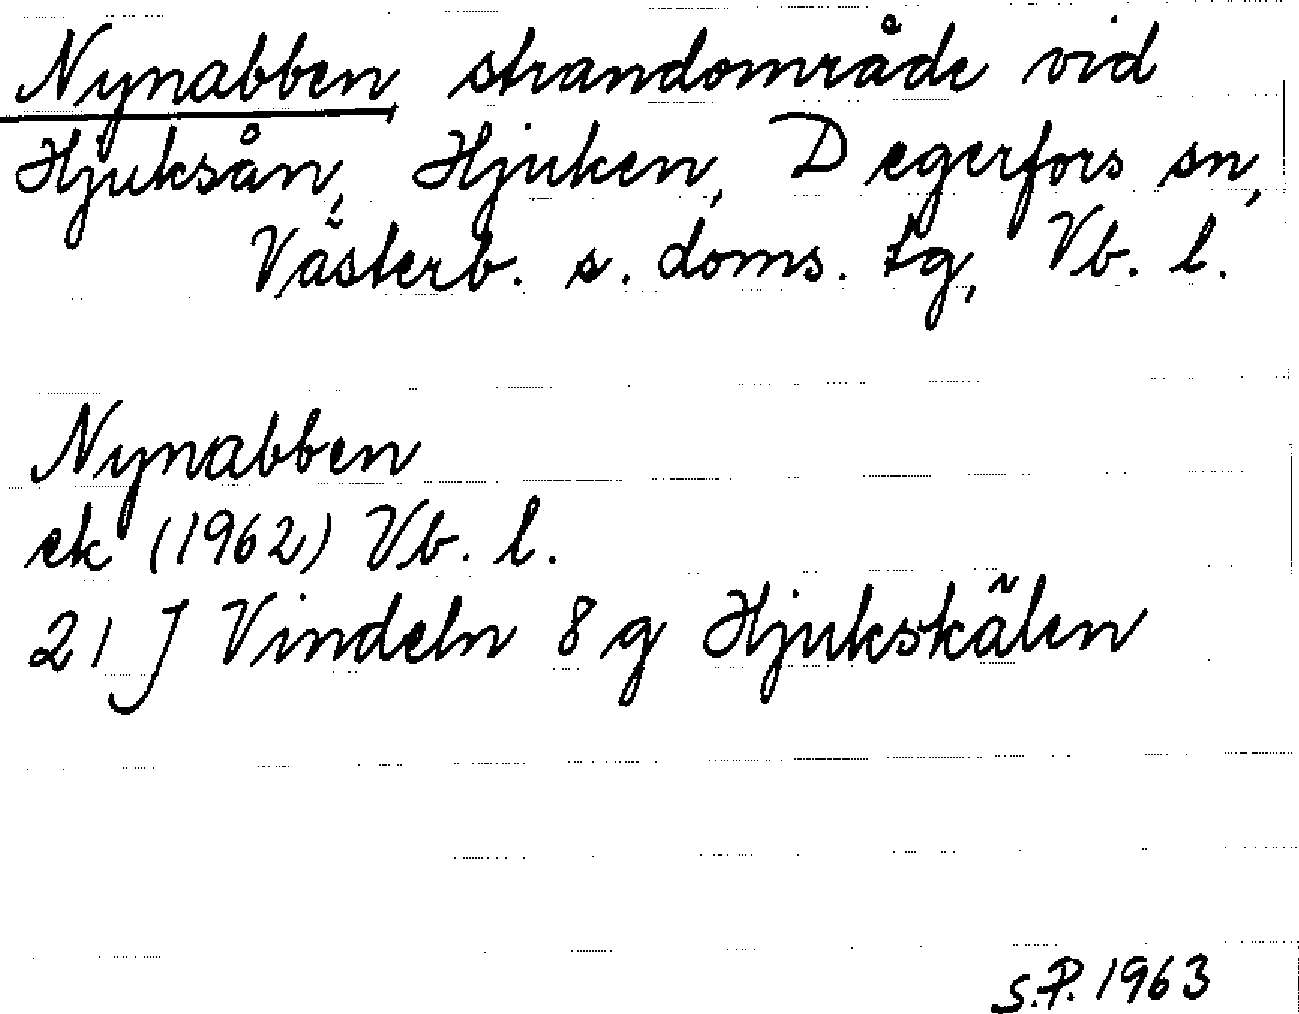 Nynabben, strandområde vid
Hjuksån, Hjuken, Degerfors sn,
Västerb. s. doms. tg, Vb. l.
Nynabben
ek (1962) Vb. l.
21 J Vindeln 8 g Hjukskälen
S.P. 1963